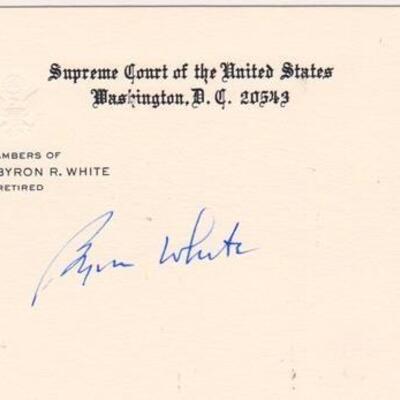 Supreme Court of the United States
Washington, D. C. 20543
AMBERS OF
BYRON R. WHITE
RETIRED
Byron White